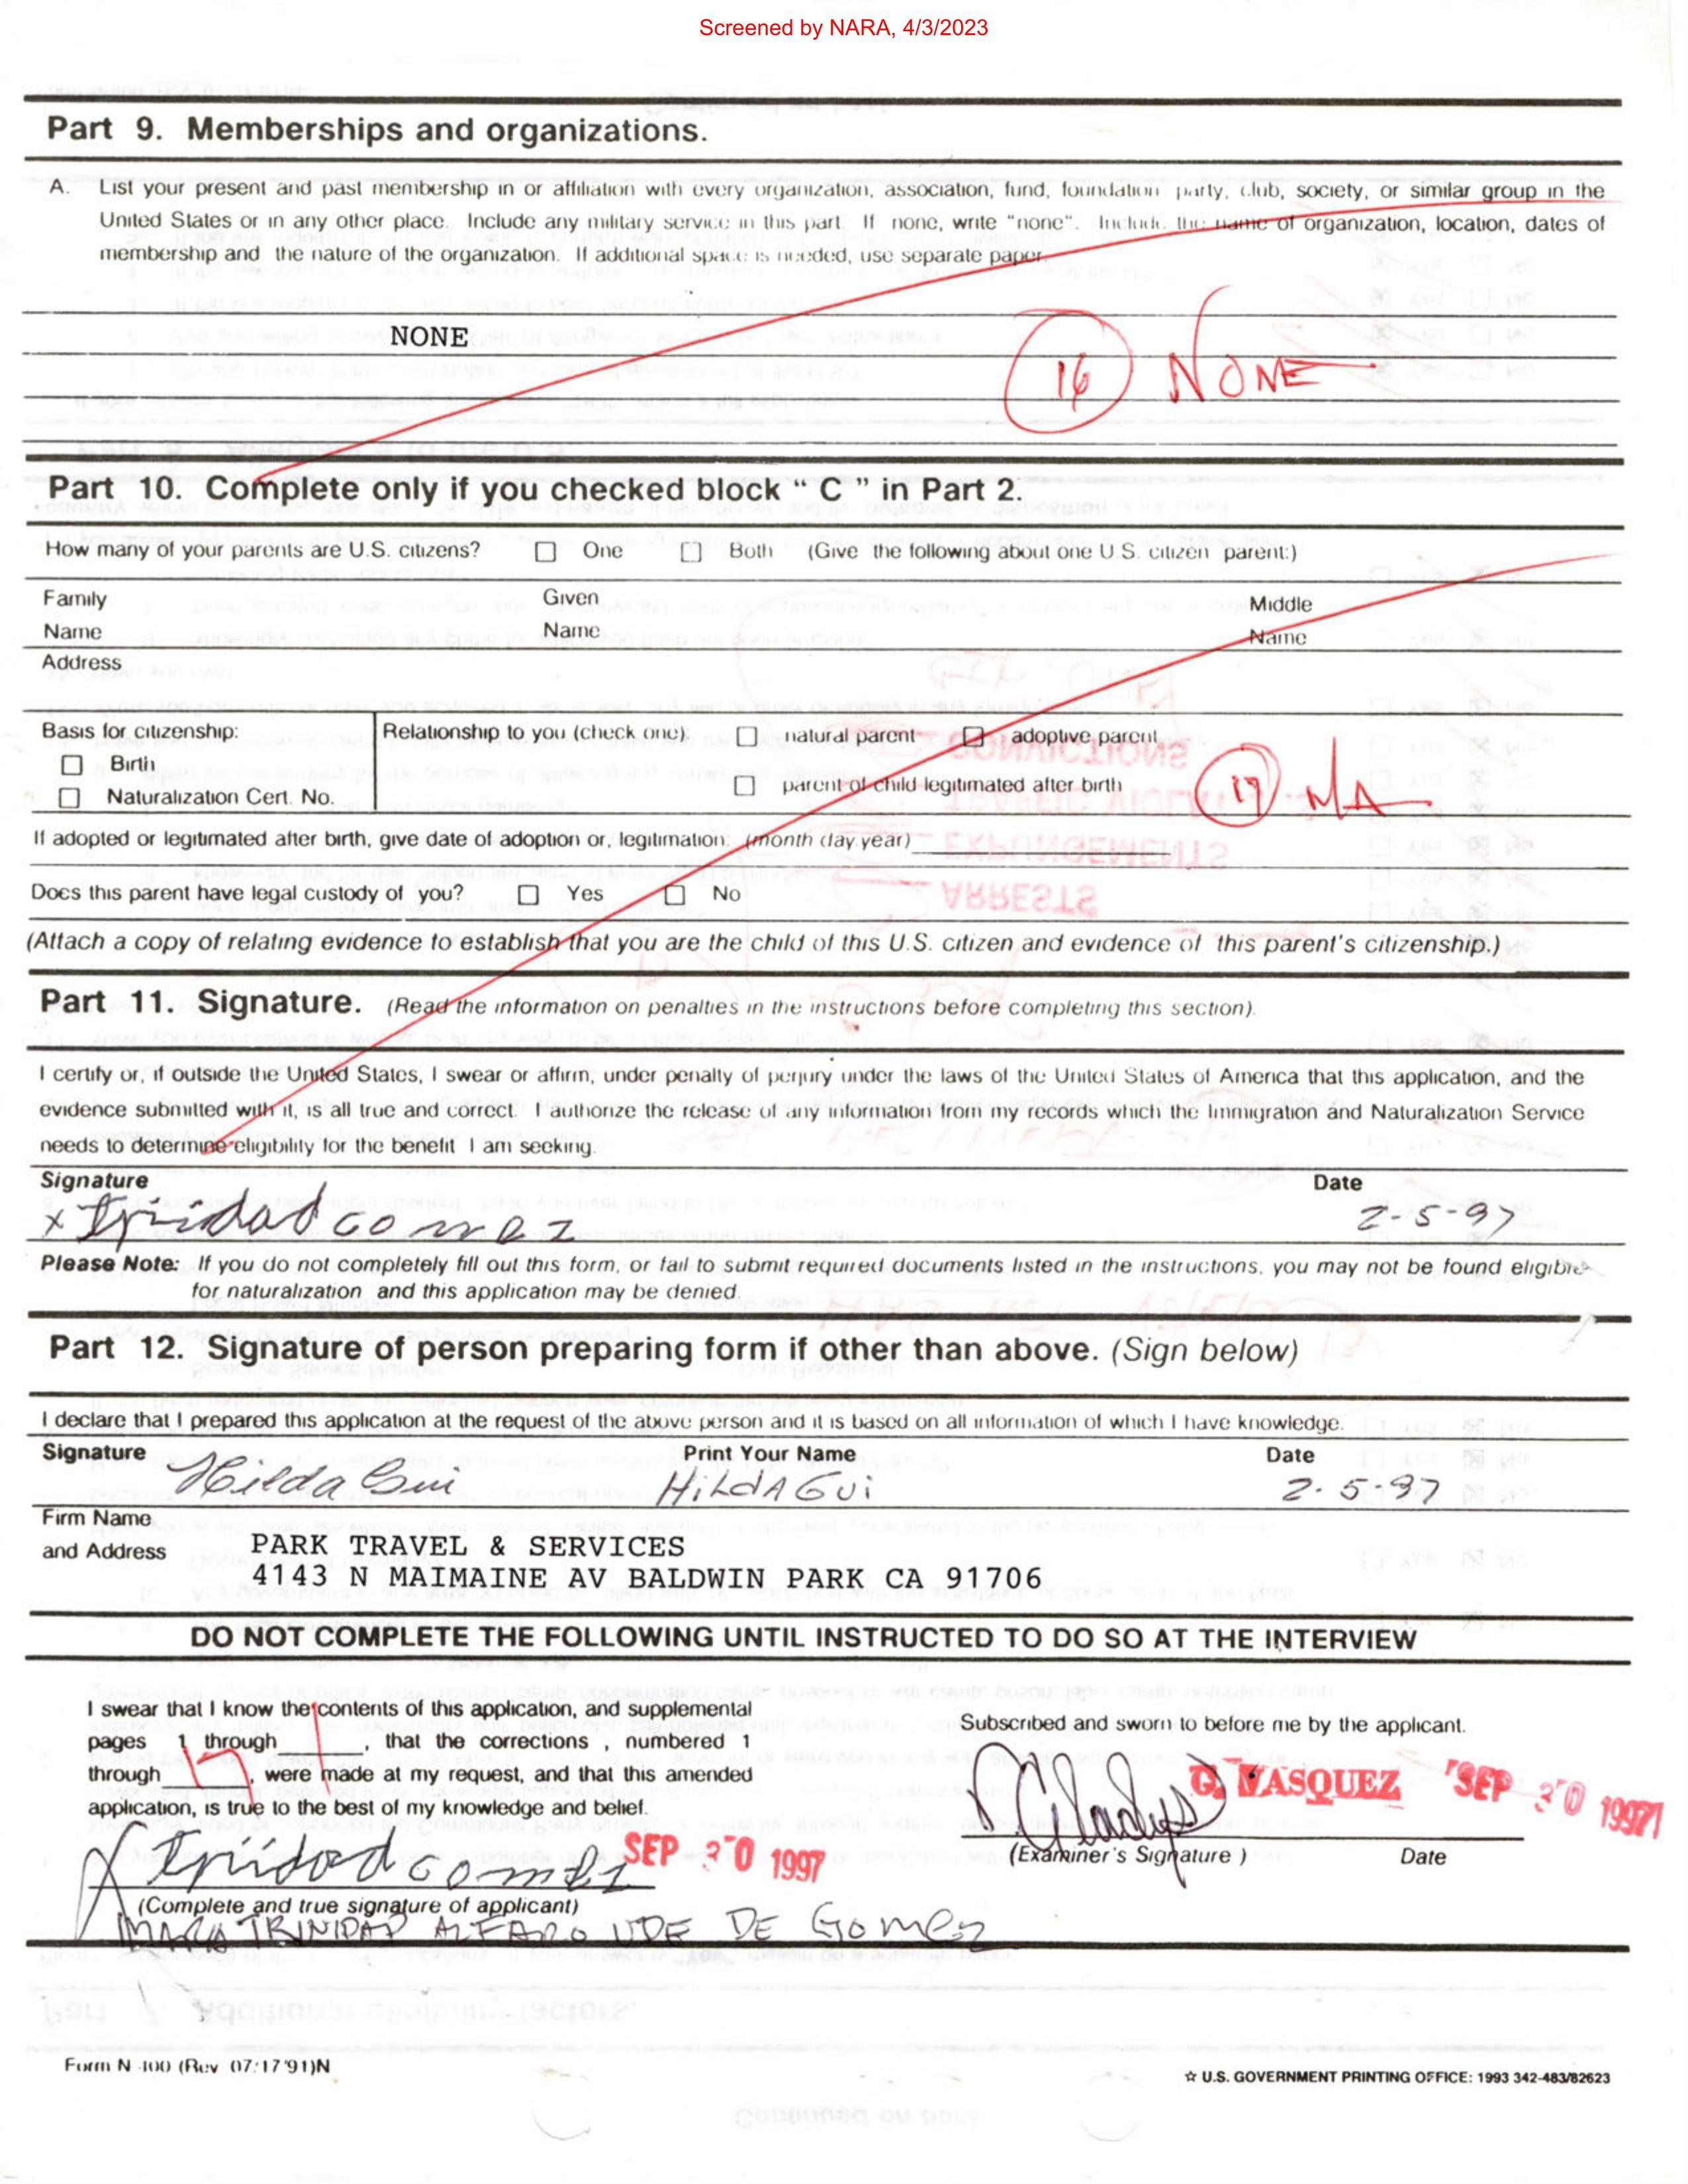 Screened by NARA, 4/3/2023
Part 9. Memberships and organizations.
A. List your present and past membership in or affiliation with every organization, association, fund, foundation party, club, society, or similar group in the
United States or in any other place. Include any military service in this part. If none, write "none". Include the name of organization, location, dates of
membership and the nature of the organization. If additional space is needed, use separate paper.
NONE
16 NONE
Part 10. Complete only if you checked block " C " in Part 2.
How many of your parents are U.S. citizens? ☐ One ☐ Both (Give the following about one U.S. citizen parent:)
Family Given Middle
Name Name Name
Address
Basis for citizenship: Relationship to you (check one): ☐ natural parent ☐ adoptive parent
☐ Birth ☐ parent of child legitimated after birth
☐ Naturalization Cert. No.
17 N/A
If adopted or legitimated after birth, give date of adoption or, legitimation: (month day year)
Does this parent have legal custody of you? ☐ Yes ☐ No
(Attach a copy of relating evidence to establish that you are the child of this U.S. citizen and evidence of this parent's citizenship.)
Part 11. Signature. (Read the information on penalties in the instructions before completing this section).
I certify or, if outside the United States, I swear or affirm, under penalty of perjury under the laws of the United States of America that this application, and the
evidence submitted with it, is all true and correct. I authorize the release of any information from my records which the Immigration and Naturalization Service
needs to determine eligibility for the benefit I am seeking.
Signature Date
x Trinidad Gomez 2-5-97
Please Note: If you do not completely fill out this form, or fail to submit required documents listed in the instructions, you may not be found eligible
for naturalization and this application may be denied.
Part 12. Signature of person preparing form if other than above. (Sign below)
I declare that I prepared this application at the request of the above person and it is based on all information of which I have knowledge.
Signature Print Your Name Date
Hilda Gui HildA Gui 2-5-97
Firm Name
and Address
PARK TRAVEL & SERVICES
4143 N MAIMAINE AV BALDWIN PARK CA 91706
DO NOT COMPLETE THE FOLLOWING UNTIL INSTRUCTED TO DO SO AT THE INTERVIEW
I swear that I know the contents of this application, and supplemental
pages 1 through , that the corrections , numbered 1
through 17, were made at my request, and that this amended
application, is true to the best of my knowledge and belief.
Trinidad Gomez SEP 30 1997
(Complete and true signature of applicant)
MARIA TRINIDAD ALFARO VDE DE Gomez
Subscribed and sworn to before me by the applicant.
Gladys G. VASQUEZ SEP 30 1997
(Examiner's Signature ) Date
Form N-400 (Rev 07/17/91)N
☆ U.S. GOVERNMENT PRINTING OFFICE: 1993 342-483/82623